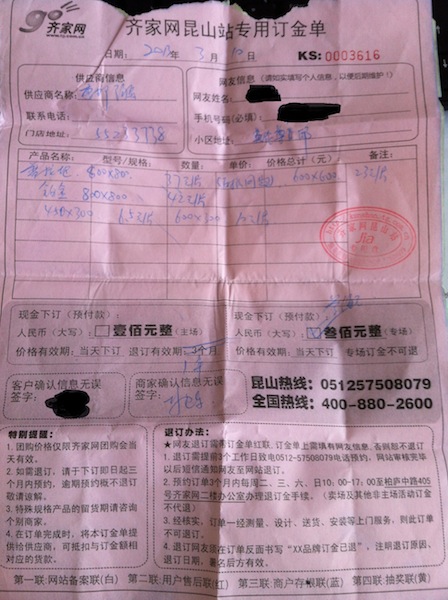 齐家网
齐家网昆山站专用订金单
日期： 年 3 月 10 日 KS: 0003616
供应商信息
供应商名称：
联系电话：
门店地址：
网友信息（请如实填写个人信息，以便后期维护！）
网友姓名：
手机号码(必填)：
小区地址：
产品名称： 型号/规格： 数量： 单价： 价格总计（元） 备注：
800x800 37元/片 600x600 23元/片
800x800 42元/片
450x300 6.5元/片 600x300
jia
现金下订（预付款）：
人民币（大写）：壹佰元整（主场）
价格有效期：当天下订 退订有效期：个月
现金下订（预付款）：
人民币（大写）：叁佰元整（专场）
价格有效期：当天下订 专场订金不可退
客户确认信息无误
签字：
商家确认信息无误
签字：
昆山热线：051257508079
全国热线：400-880-2600
特别提醒：
1. 团购价格仅限齐家网团购会当
天有效。
2. 如需退订，请于下订即日起三
个月内预约，逾期预约概不退订
敬请谅解。
3. 特殊规格产品的留货期请咨询
个别商家。
4. 在订单完成时，将本订金单提
供给供应商，可抵扣与订金额相
对应的货款。
退订办法：
★网友退订需带订金单红联，订金单上需填有网友信息，否则恕不退订
1. 退订需提前3个工作日致电0512-57508079电话预约，网站审核完毕
以后短信通知网友至网站退订。
2. 预约订单3个月内每周二、三、六、日10:00-17:00至柏庐中路405
号齐家网二楼办公室办理退订金手续。（卖场及其他非主场活动订金
不代退）
3. 经核实，订单一经测量、设计、送货、安装等上门服务，则此订单
不可退订。
4. 退订网友须在订单反面书写“XX品牌订金已退”，注明退订原因、
退订日期、署名后方有效。
第一联:网站备案联(白) 第二联:用户售后联(红) 第三联:商户存根联(蓝) 第四联:抽奖联(黄)